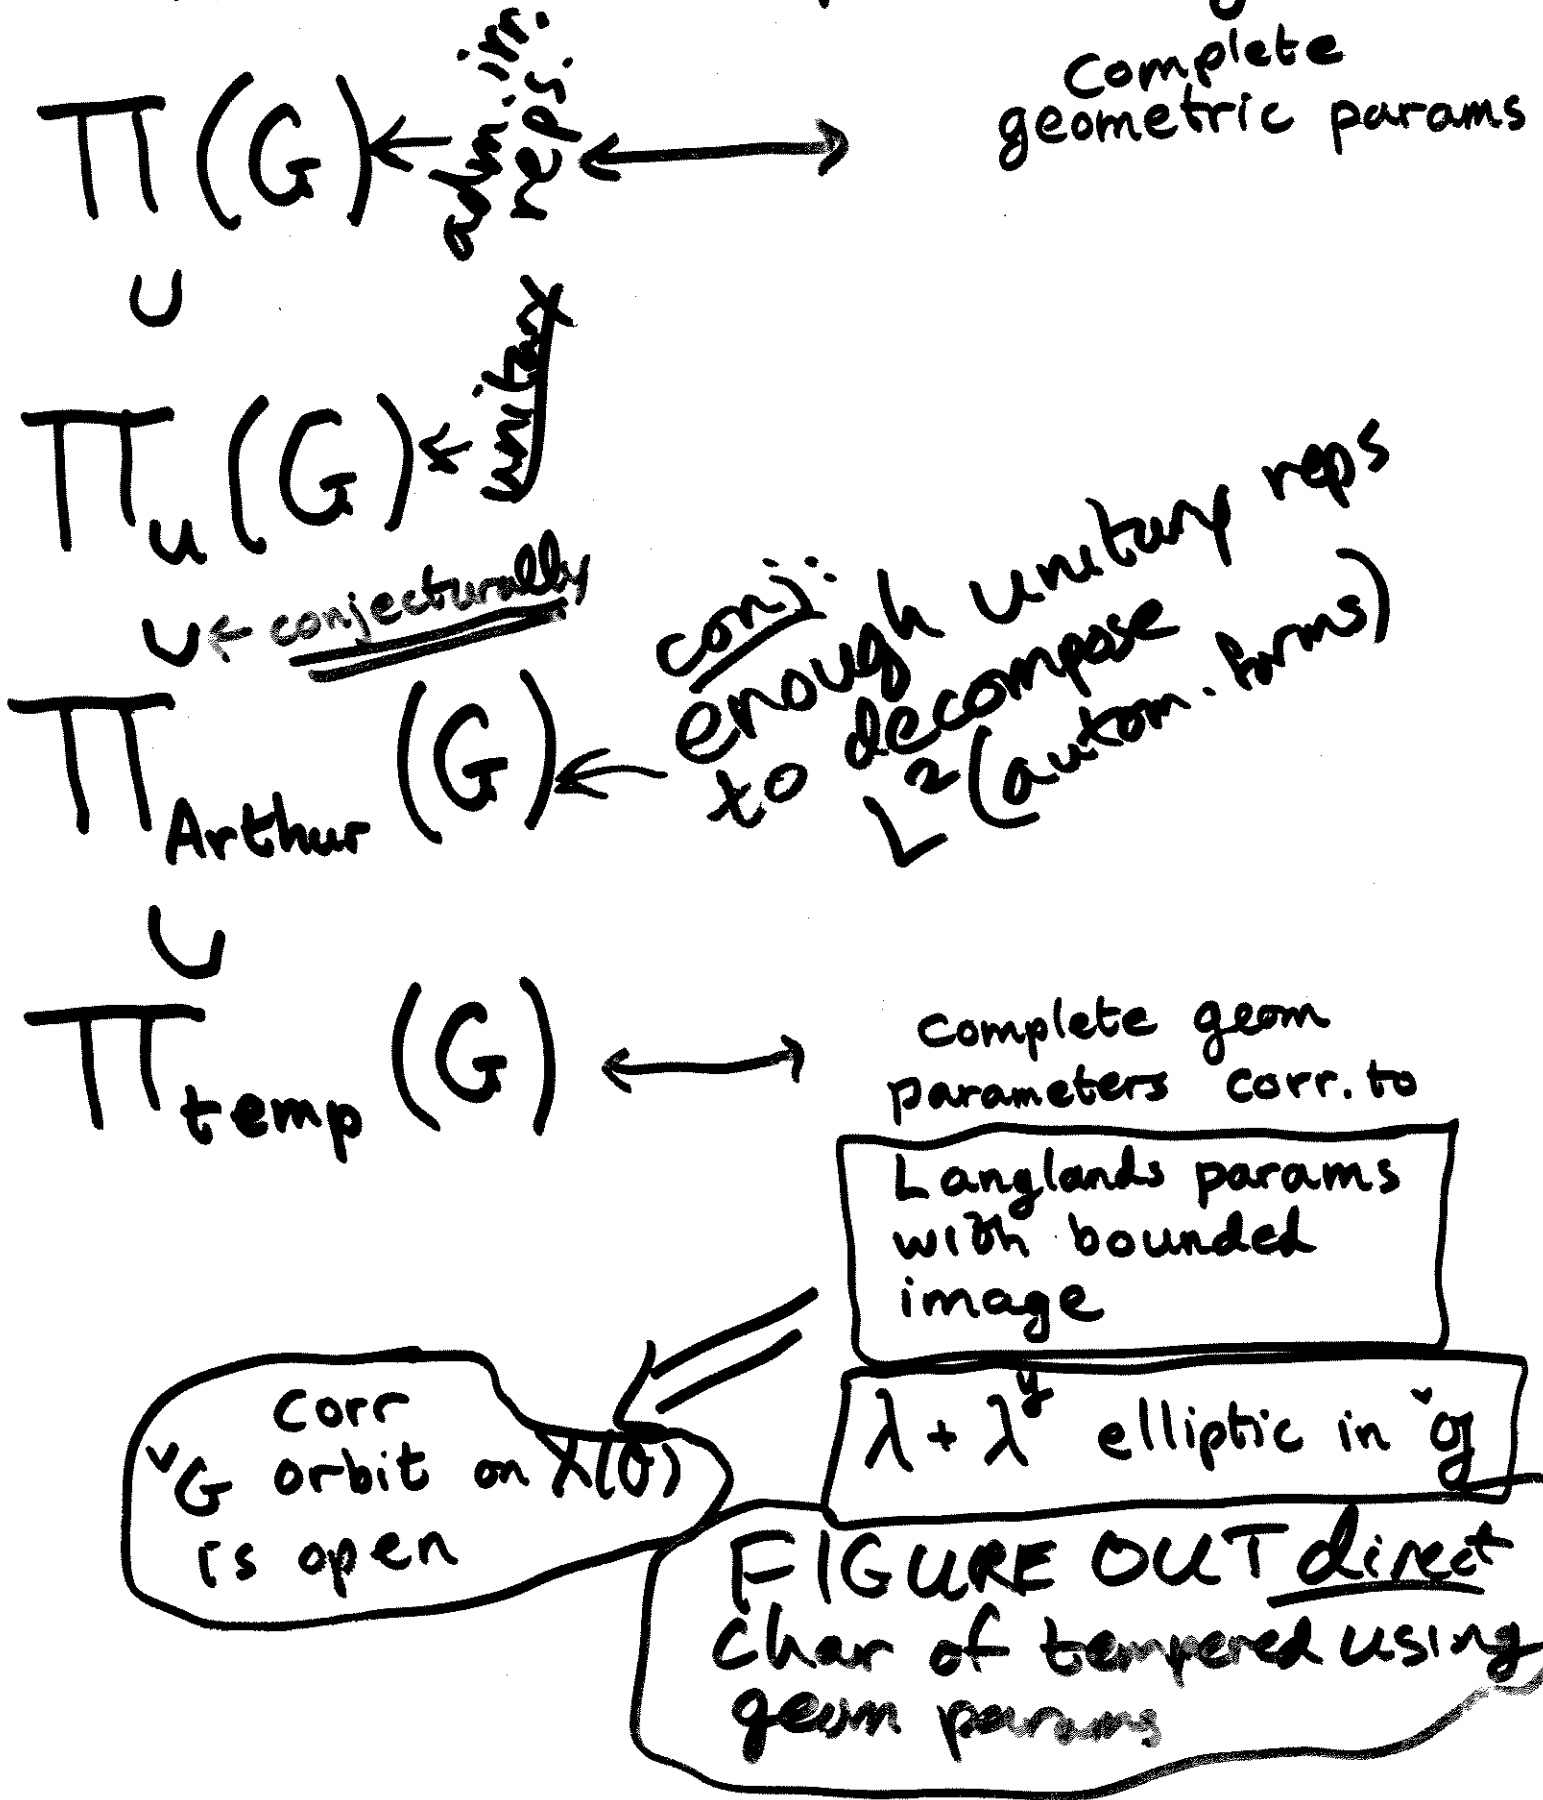 Π(G) ← adm. irr. reps. ↔ Complete geometric params
∪
Π_u(G) ← unitary
∪ ← conjecturally
Π_Arthur(G) ← conj: enough unitary reps
to decompose
L²(autom. forms)
∪
Π_temp(G) ↔ complete geom
parameters corr. to
Langlands params
with bounded
image
λ + λ^y elliptic in ˇg
corr
ˇG orbit on X(O)
is open
FIGURE OUT direct
char of tempered using
geom params